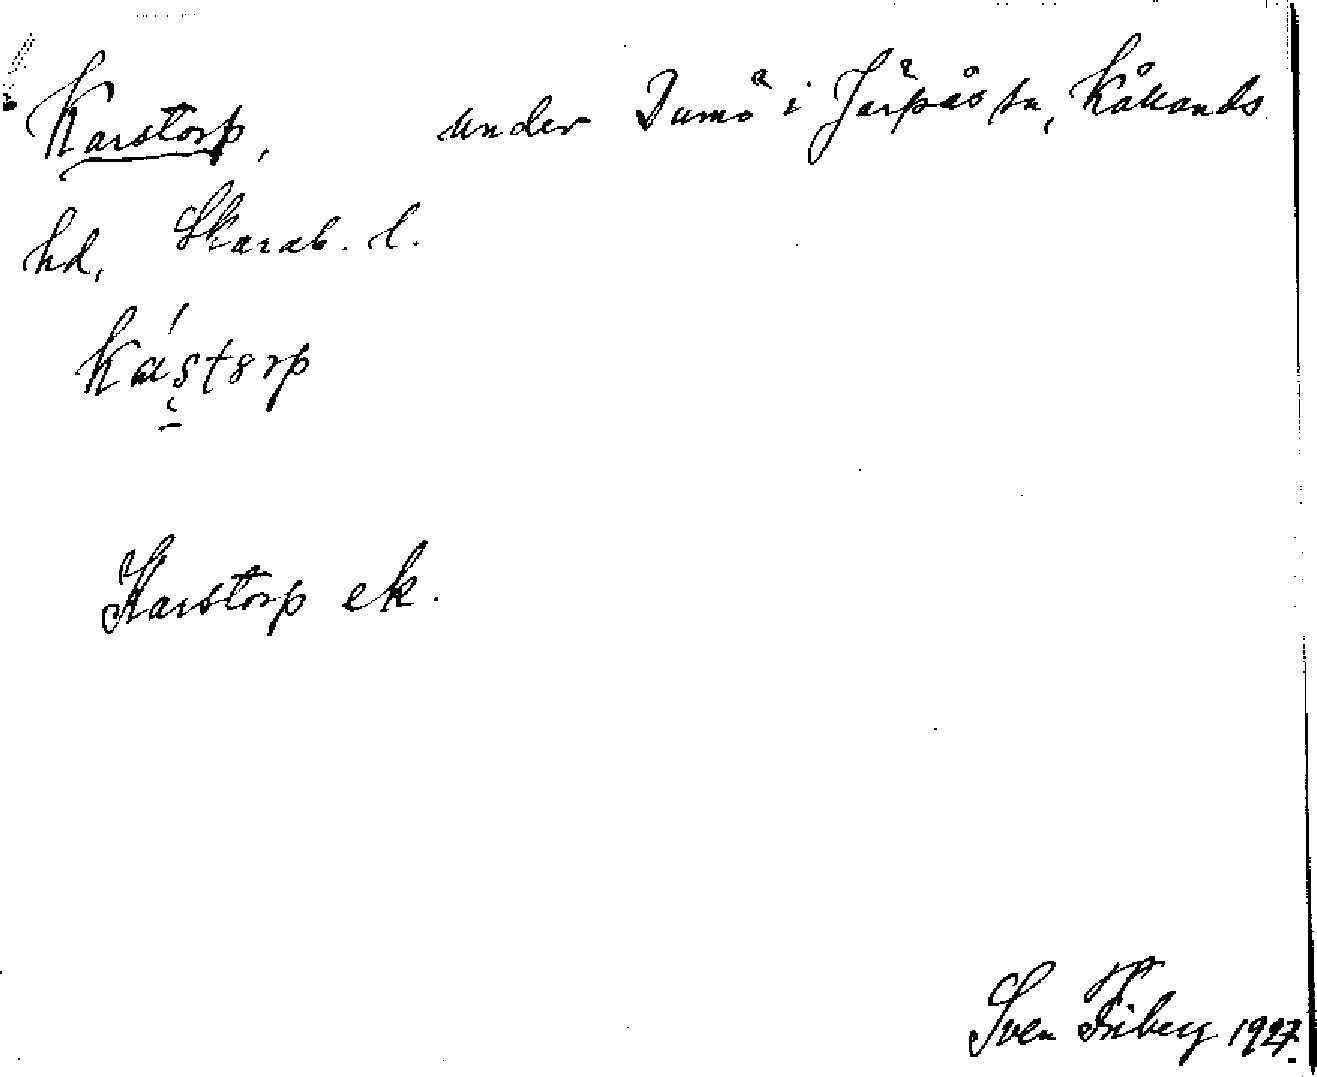 Karstorp, under Dumö i Järpås sn, Kållands
hd, Skarab. l.
Karstorp ek.
Sven Friberg 1927.